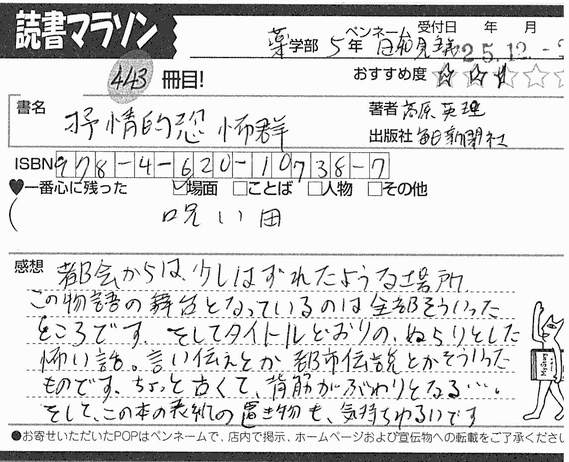 読書マラソン
薬学部 5年 ペンネーム 受付日 年 月
25.12.-
443 冊目! おすすめ度
書名 抒情的恐怖群 著者 高原英理
出版社 毎日新聞社
ISBN 978-4-620-10738-7
♥一番心に残った ☑場面 □ことば □人物 □その他
( 呪い田
感想 都会からは、少しはずれたような場所。
この物語の舞台となっているのは全部そういった
ところです。そしてタイトルどおりの、ぬらりとした
怖い話。言い伝えとか都市伝説とかそういった
ものです。ちょっと古くて、背筋がぶわりとなる…。
そして、この本の表紙の置き物も、気持ちわるいです
●お寄せいただいたPOPはペンネームで、店内で掲示、ホームページおよび宣伝物への転載をご了承くださ